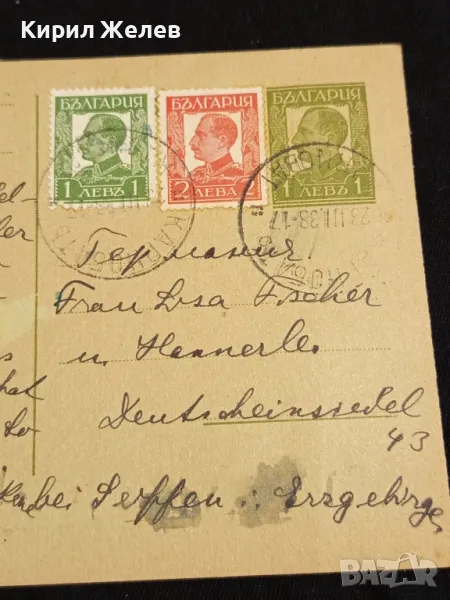 Кирил Желев
БЪЛГАРИЯ
1 ЛЕВЪ 1
БЪЛГАРИЯ
2 ЛЕВА 2
БЪЛГАРИЯ
1 ЛЕВЪ 1
КАРНОБАТ
23 III.38-17
Германия
Frau Lisa Fischer
u. Hannerle
Deutscheinsiedel
43
bei Seiffen i. Erzgebirge
hat
So
bazar